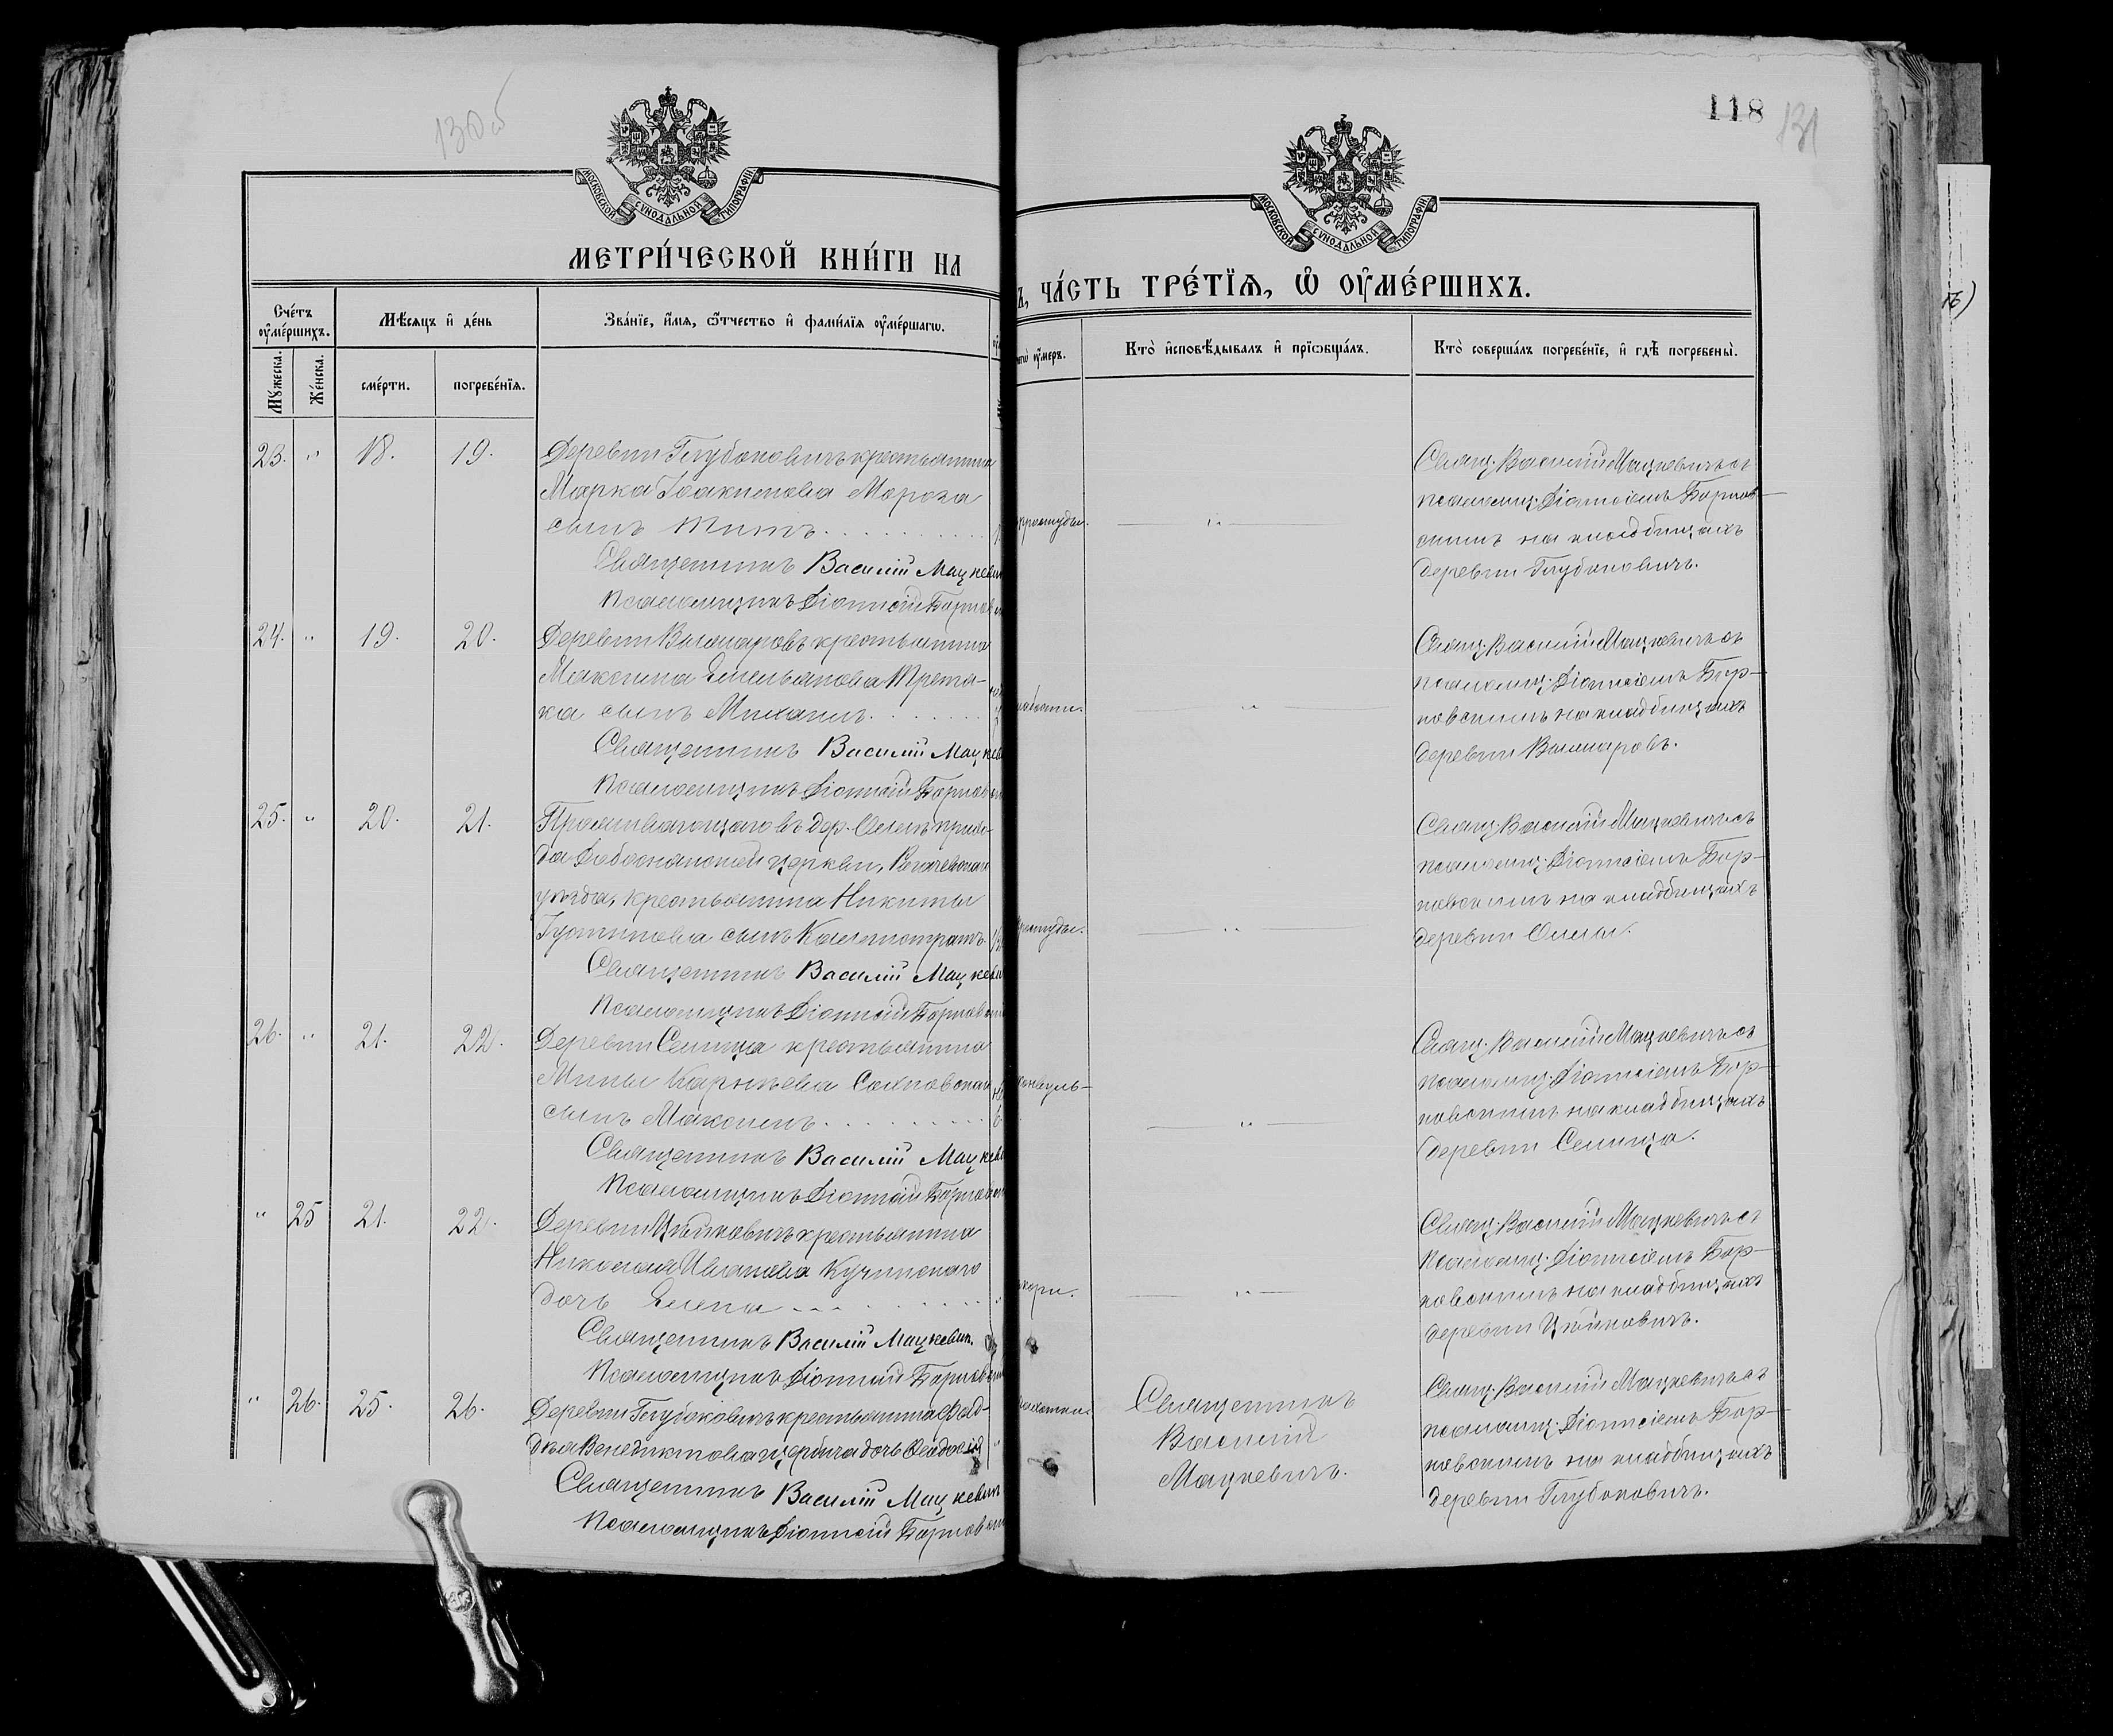 130об
МОСКОВСКОЙ СѴНОДАЛЬНОЙ ТИПОГРАФІИ
МЕТРИ́ЧЕСКОЙ КНИ́ГИ НА
Сче́тъ ᲂу҆ме́ршихъ.
Мѣ́сяцъ и҆ де́нь
Зва́нїе, и҆́мя, ѻ҆́тчество и҆ фами́лїя ᲂу҆ме́ршагѡ.
Мꙋ́жеска.
Же́нска.
сме́рти.
погребе́нїѧ.
23. " 18. 19. Деревни Глубоковичъ крестьянина
Марка Іоакимова Мороза
сынъ Титъ
Священникъ Василій Мацкевич
Псаломщикъ Діонисій Борков
24. " 19. 20. Деревни Вильчаровъ крестьянина
Максима Емельянова Трета-
ка сынъ Михаилъ
Священникъ Василій Мацкев
Псаломщикъ Діонисій Борков
25. " 20. 21. Проживающаго въ дер. прихо-
да церкви,
уѣзда, крестьянина Никиты
Густинова сынъ Калистратъ
Священникъ Василій Мацкев
Псаломщикъ Діонисій Борков
26. " 21. 22. Деревни Селища крестьянина
Мины
сынъ Максимъ
Священникъ Василій Мацкев
Псаломщикъ Діонисій Борков
" 25 21. 22. Деревни крестьянина
Николая Иванова Кучинскаго
дочь Елена
Священникъ Василій Мацкевич.
Псаломщикъ Діонисій Борков
" 26. 25. 26. Деревни Глубоковичъ крестьянина Фад-
дея Венедиктова дочь Феодосія
Священникъ Василій Мацкевич
Псаломщикъ Діонисій Борков
118 131
МОСКОВСКОЙ СѴНОДАЛЬНОЙ ТИПОГРАФІИ
Ъ, ЧА́СТЬ ТРЕ́ТЇѦ, Ѡ҆ ОУ҆МЕ́РШИХЪ.
чегѡ̀ ᲂу҆́меръ.
Кто̀ и҆сповѣ́дывалъ и҆ прїѡбща́лъ.
Кто̀ соверша́лъ погребе́нїе, и҆ гдѣ̀ погребены̀.
простуды. " Свящ. Василій Мацкевичъ съ
псаломщ. Діонисіемъ Борков-
скимъ на кладбищахъ
деревни Глубоковичъ.
" Свящ. Василій Мацкевичъ съ
псаломщ. Діонисіемъ Бор-
ковскимъ на кладбищахъ
деревни Вильчаровъ.
простуды. " Свящ. Василій Мацкевичъ съ
псаломщ. Діонисіемъ Бор-
ковскимъ на кладбищахъ
деревни
" Свящ. Василій Мацкевичъ съ
псаломщ. Діонисіемъ Бор-
ковскимъ на кладбищахъ
деревни Селища.
кори. " Свящ. Василій Мацкевичъ съ
псаломщ. Діонисіемъ Бор-
ковскимъ на кладбищахъ
деревни
Священникъ
Василій
Мацкевичъ.
Свящ. Василій Мацкевичъ съ
псаломщ. Діонисіемъ Бор-
ковскимъ на кладбищахъ
деревни Глубоковичъ.